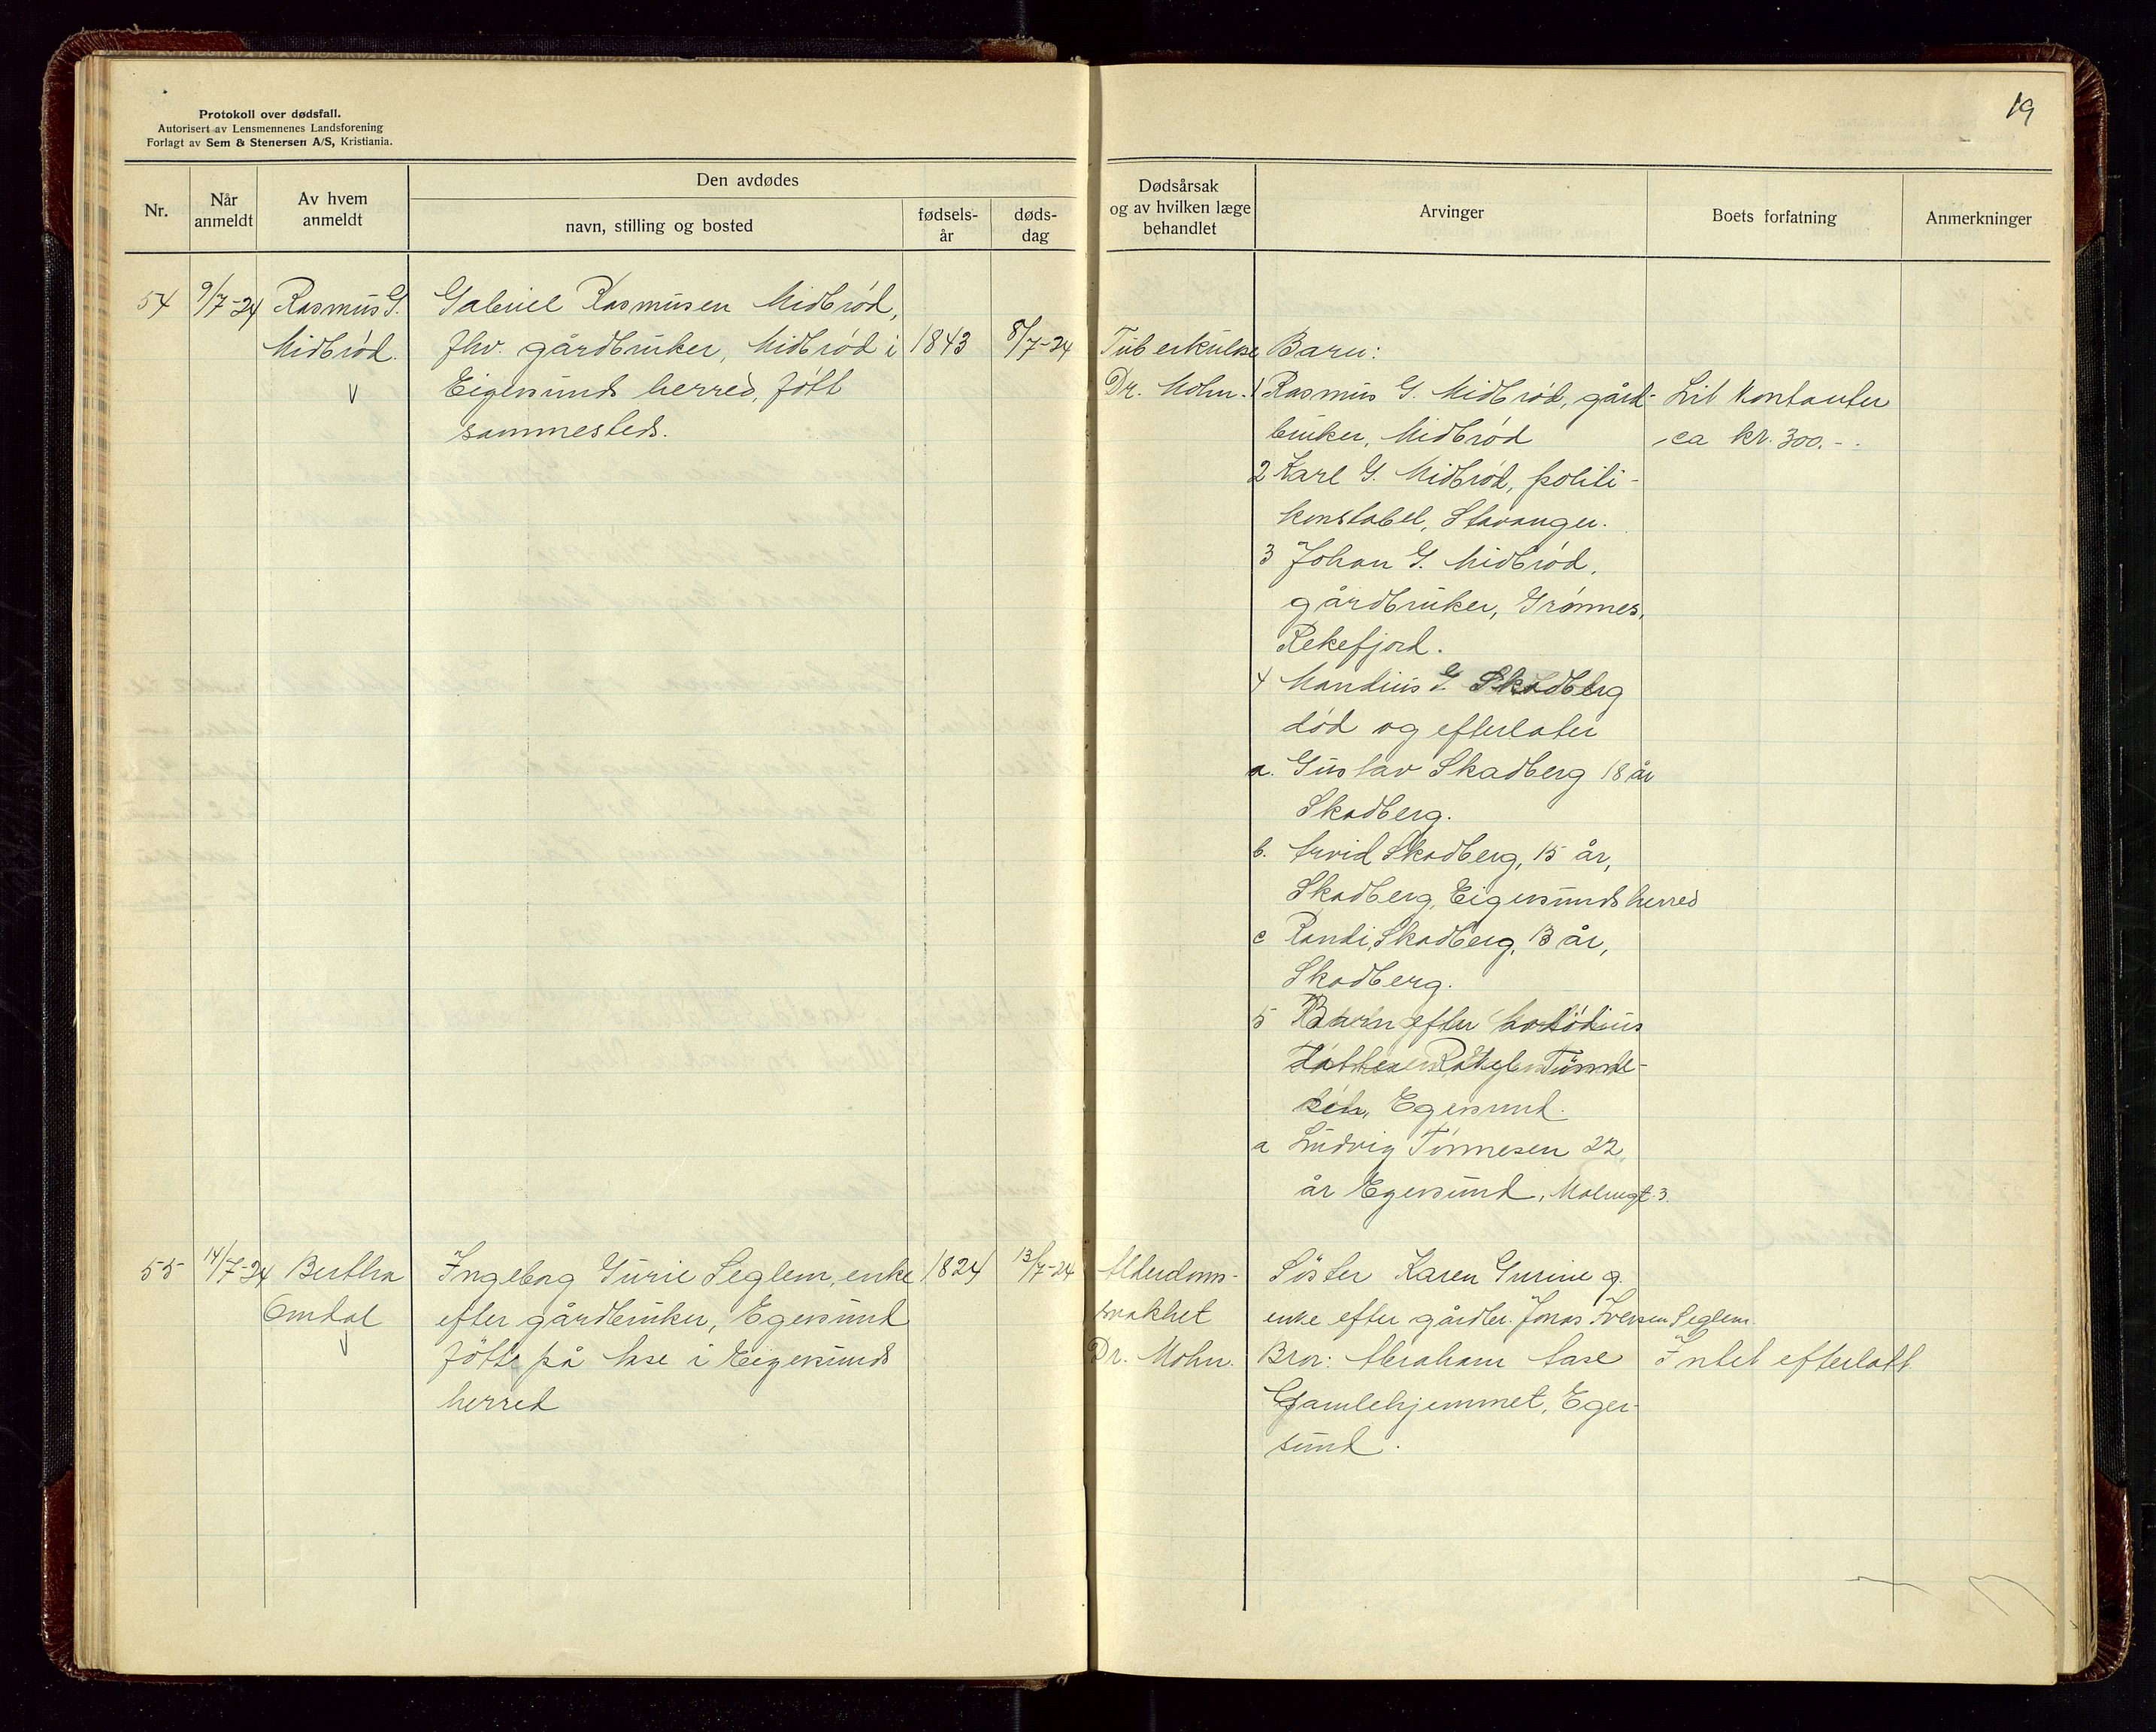 19
Protokoll over dødsfall.
Autorisert av Lensmennenes Landsforening
Forlagt av Sem & Stenersen A/S, Kristiania.
Nr.
Når anmeldt
Av hvem anmeldt
Den avdødes
navn, stilling og bosted
fødsels-år
døds-dag
Dødsårsak og av hvilken læge behandlet
Arvinger
Boets forfatning
Anmerkninger
54 9/7-24 Rasmus G.
Midbrød.
Gabriel Rasmusen Midbrød,
fhv. gårdbruker, Midbrød i 1843 8/7-24
Eigersunds herred, født
sammesteds.
Tuberkulose
Dr. Mohn.
Barn:
1 Rasmus G. Midbrød, gård-
bruker, Midbrød
2 Karl G. Midbrød, politi-
konstabel, Stavanger.
3 Johan G. Midbrød,
gårdbruker, Grønnes,
Rekefjord.
4 G. Skadberg
død og efterlater
a. Gustav Skadberg 18 år
Skadberg.
b. Arvid Skadberg, 15 år,
Skadberg, Eigersunds herred
c Randi Skadberg, 13 år,
Skadberg.
5 Barn efter
Egersund.
a Ludvig Tønnesen 22
år Egersund, 3.
Lit kontanter
ca kr. 300.-.
55 14/7-24 Bertha
Omdal
Ingeborg Gurie Seglem, enke 1824 13/7-24
efter gårdbruker, Egersund
født på Aase i Eigersunds
herred
Alderdoms-
svakhet
Dr. Mohn.
Søster Karen Gurine g.
enke efter gårdbr. Jonas Iversen Seglem.
Bror: Abraham Aase
Gamlehjemmet, Eger-
sund.
Intet efterlatt